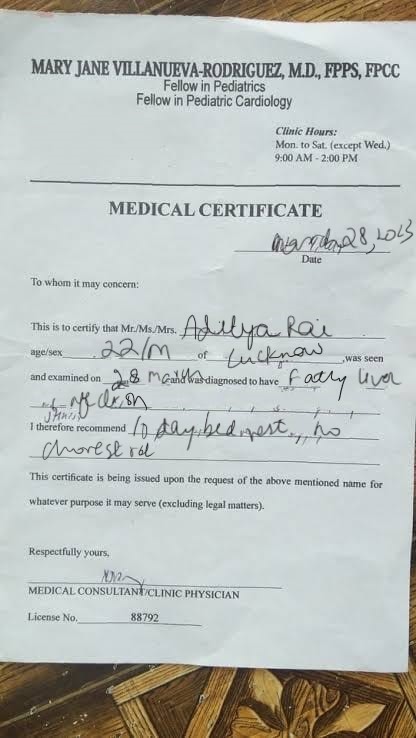 MARY JANE VILLANUEVA-RODRIGUEZ, M.D., FPPS, FPCC
Fellow in Pediatrics
Fellow in Pediatric Cardiology
Clinic Hours:
Mon. to Sat. (except Wed.)
9:00 AM - 2:00 PM
MEDICAL CERTIFICATE
28, 2023
Date
To whom it may concern:
This is to certify that Mr./Ms./Mrs. Aditya Rai
age/sex 22/M of Lucknow ,was seen
and examined on 28 March and was diagnosed to have Fatty liver
I therefore recommend 10 day bed rest, no
This certificate is being issued upon the request of the above mentioned name for
whatever purpose it may serve (excluding legal matters).
Respectfully yours,
MEDICAL CONSULTANT/CLINIC PHYSICIAN
License No. 88792